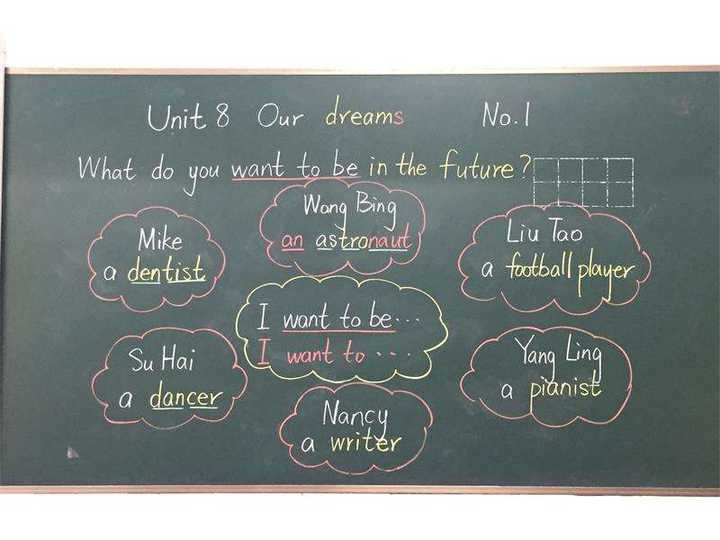 Unit 8 Our dreams No.1
What do you want to be in the future?
Wang Bing
an astronaut
Mike
a dentist
Liu Tao
a football player
I want to be...
I want to...
Su Hai
a dancer
Yang Ling
a pianist
Nancy
a writer